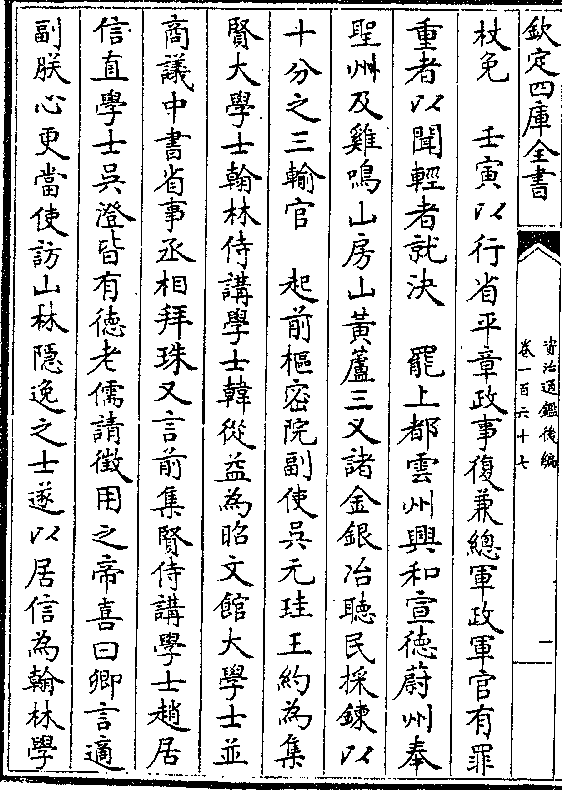 欽定四庫全書
資治通鑑後編
卷一百六十七
一
杖免　壬寅以行省平章政事復兼總軍政軍官有罪
重者以聞輕者就決　罷上都雲州興和宣德蔚州奉
聖州及雞鳴山房山黃蘆三义諸金銀冶聽民採鍊以
十分之三輸官　起前樞密院副使吳元珪王約為集
賢大學士翰林侍講學士韓從益為昭文館大學士並
商議中書省事丞相拜珠又言前集賢侍講學士趙居
信直學士吳澄皆有德老儒請徵用之帝喜曰卿言適
副朕心更當使訪山林隱逸之士遂以居信為翰林學